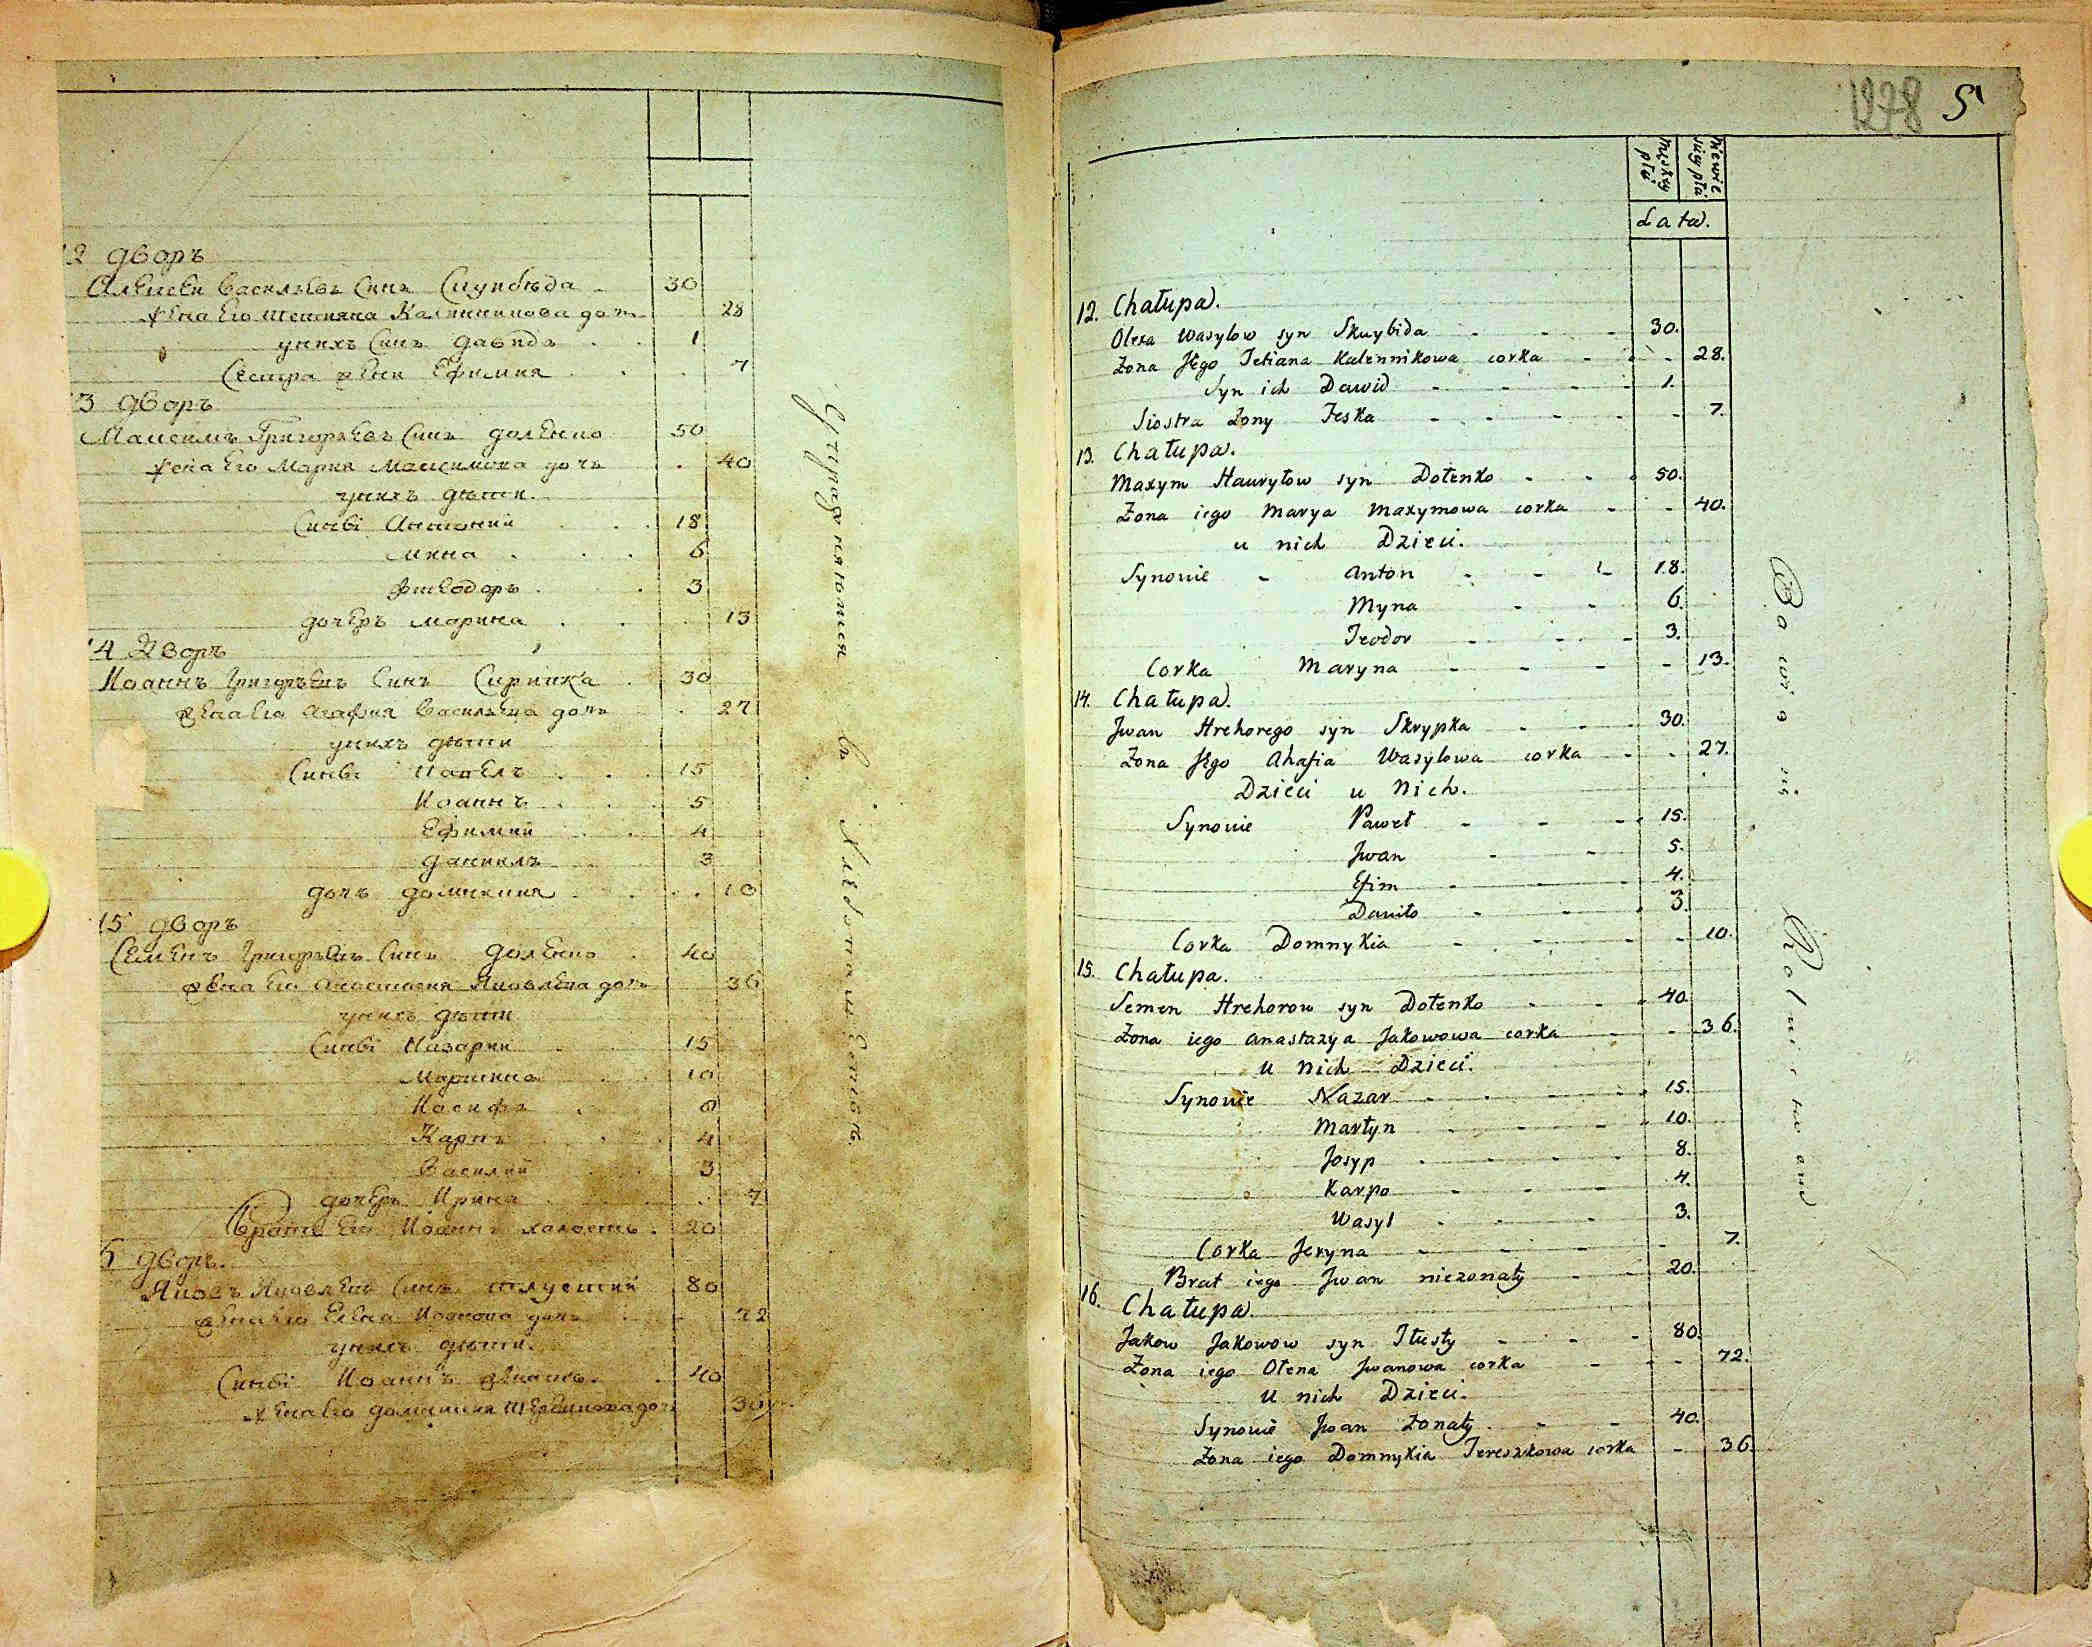 12 дворъ
Алексеи Василіевъ Синъ Скуибѣда 30
жена Его татиана Калинникова дочъ 28
унихъ Синъ давидъ 1
Сестра жени Ефимия 7
13 дворъ
Максимъ Григориевъ Синъ доленко 50
жена Его Мария Максимова дочъ 40
унихъ дѣти.
Сынві Антоний 18
мина 6
Фтеодоръ 3
дочеръ марина 13
14 дворъ
Иоаннъ Григориевъ Синъ Скрипка 30
жена Его Агафия Василиева дочъ 27
унихъ дѣти
Синві Павелъ 15
Иоаннъ 5
Ефимий 4
даниилъ 3
дочъ домникия 10
15 дворъ
Семенъ Григориевъ Синъ доленко 40
жена Его Анастасия Яковлева дочъ 36
унихъ дѣти
Синві Назарий 15
Мартинъ 10
Иосифъ 8
Карпъ 4
Василий 3
дочеръ Ирина 7
братъ Его Иоаннъ холостъ 20
6 дворъ.
Яковъ Яковлевъ Синъ тлустий 80
жена Его Елена Иоанова дочъ 72
унихъ дѣти.
Синві Иоаннъ женатъ. 40
жена Его домникия дочъ 36
Упражняются в
1278 5
Męskiey płci Niewieściey płci
Lata.
12. Chałupa.
Olexa Wasylow syn Skuybida 30.
Żona Jego Tetiana Kalennikowa corka 28.
Syn ich Dawid 1.
Siostra Żony Jeska 7.
13. Chałupa.
Maxym Hawryłow syn Dołenko 50.
Żona iego Marya Maxymowa corka 40.
u nich Dzieci.
Synowie Anton 18.
Myna 6.
Teodor 3.
Corka Maryna 13.
14. Chałupa.
Jwan Hrehorego syn Skrypka 30.
Żona Jego Ahafia Wasylowa corka 27.
Dzieci u Nich.
Synowie Paweł 15.
Jwan 5.
Efim 4.
Daniło 3.
Corka Domnykia 10.
15. Chałupa.
Semen Hrehorow syn Dołenko 40.
Żona iego Anastazya Jakowowa corka 36.
u Nich Dzieci.
Synowie Nazar 15.
Martyn 10.
Josyp 8.
Karpo 4.
Wasyl 3.
Corka Jeryna 7.
Brat iego Jwan nieżonaty 20.
16. Chałupa.
Jakow Jakowow syn Tłusty 80.
Żona iego Ołena Jwanowa corka 72.
U nich Dzieci.
Synowie Jwan Żonaty 40.
Żona iego Domnykia Tereszkowa corka 36.
Bawią się Rolnictwem